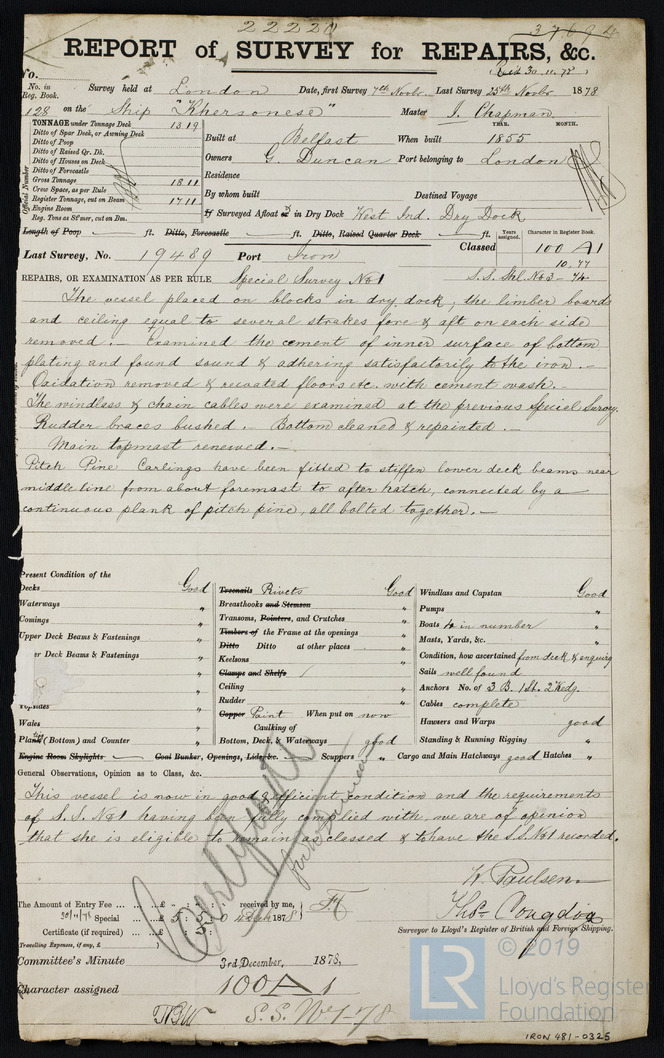 22220
37694
REPORT of SURVEY for REPAIRS, &c.
No.
Recd 30.11.78
No. in Reg. Book. Survey held at London Date, first Survey 7th Novbr. Last Survey 25th Novbr 1878
128 on the Ship "Khersonese" Master J. Chapman
TONNAGE under Tonnage Deck 1319
Ditto of Spar Deck, or Awning Deck
Ditto of Poop
Ditto of Raised Qr. Dk.
Ditto of Houses on Deck
Ditto of Forecastle
Gross Tonnage 1811
Crew Space, as per Rule
Register Tonnage, cut on Beam 1711
Engine Room
Reg. Tons as St'mer, cut on Bm.
Official Number
YEAR. MONTH.
Built at Belfast When built 1855
Owners G. Duncan Port belonging to London
Residence
By whom built Destined Voyage
If Surveyed Afloat or in Dry Dock West Ind. Dry Dock
Length of Poop ft. Ditto, Forecastle ft. Ditto, Raised Quarter Deck ft.
Years assigned. Character in Register Book.
Last Survey, No. 19489 Port Iron Classed 100 A1
10.77
REPAIRS, OR EXAMINATION AS PER RULE Special Survey No1 S.S. Shl. No3 - 74
The vessel placed on blocks in dry dock, the limber boards
and ceiling equal to several strakes fore & aft on each side
removed. Examined the cement of inner surface of bottom
plating and found sound & adhering satisfactorily to the iron.
Oxidation removed & recoated floors etc. with cement wash.
The windlass & chain cables were examined at the previous Special Survey.
Rudder braces bushed. Bottom cleaned & repainted.
Main topmast renewed.
Pitch Pine Carlings have been fitted to stiffen lower deck beams near
middle line from about foremast to after hatch, connected by a
continuous plank of pitch pine, all bolted together.
Present Condition of the
Decks Good
Waterways "
Comings "
Upper Deck Beams & Fastenings "
er Deck Beams & Fastenings "
Topsides "
Wales "
Plank (Bottom) and Counter "
Engine Room Skylights
Treenails Rivets Good
Breasthooks and Stemson "
Transoms, Pointers, and Crutches "
Timbers of the Frame at the openings "
Ditto Ditto at other places "
Keelsons "
Clamps and Shelfs
Ceiling "
Rudder "
Copper Paint When put on now
Caulking of
Bottom, Deck, & Waterways good
Coal Bunker, Openings, Lids, &c. Scuppers "
Windlass and Capstan Good
Pumps "
Boats 4 in number "
Masts, Yards, &c. "
Condition, how ascertained from deck & enquiry
Sails well found
Anchors No. of 3 B. 1 St. 2 Kedg.
Cables complete
Hawsers and Warps good
Standing & Running Rigging "
Cargo and Main Hatchways good Hatches "
General Observations, Opinion as to Class, &c.
This vessel is now in good & efficient condition and the requirements
of S.S. No1 having been fully complied with, we are of opinion
that she is eligible to remain as classed & to have the S.S. No1 recorded.
W. Paulsen
Thos. Congdon
Surveyor to Lloyd's Register of British and Foreign Shipping.
The Amount of Entry Fee ... £ " : " : " received by me,
30/11/78 Special ... £ 5 : 5 : 0 1878
Certificate (if required) ... £
Travelling Expenses, if any, £
Committee's Minute 3rd December, 1878.
Character assigned 100 A 1
S.S. No 1-78
© 2019
LR
Lloyd's Register
Foundation
IRON 481-0325